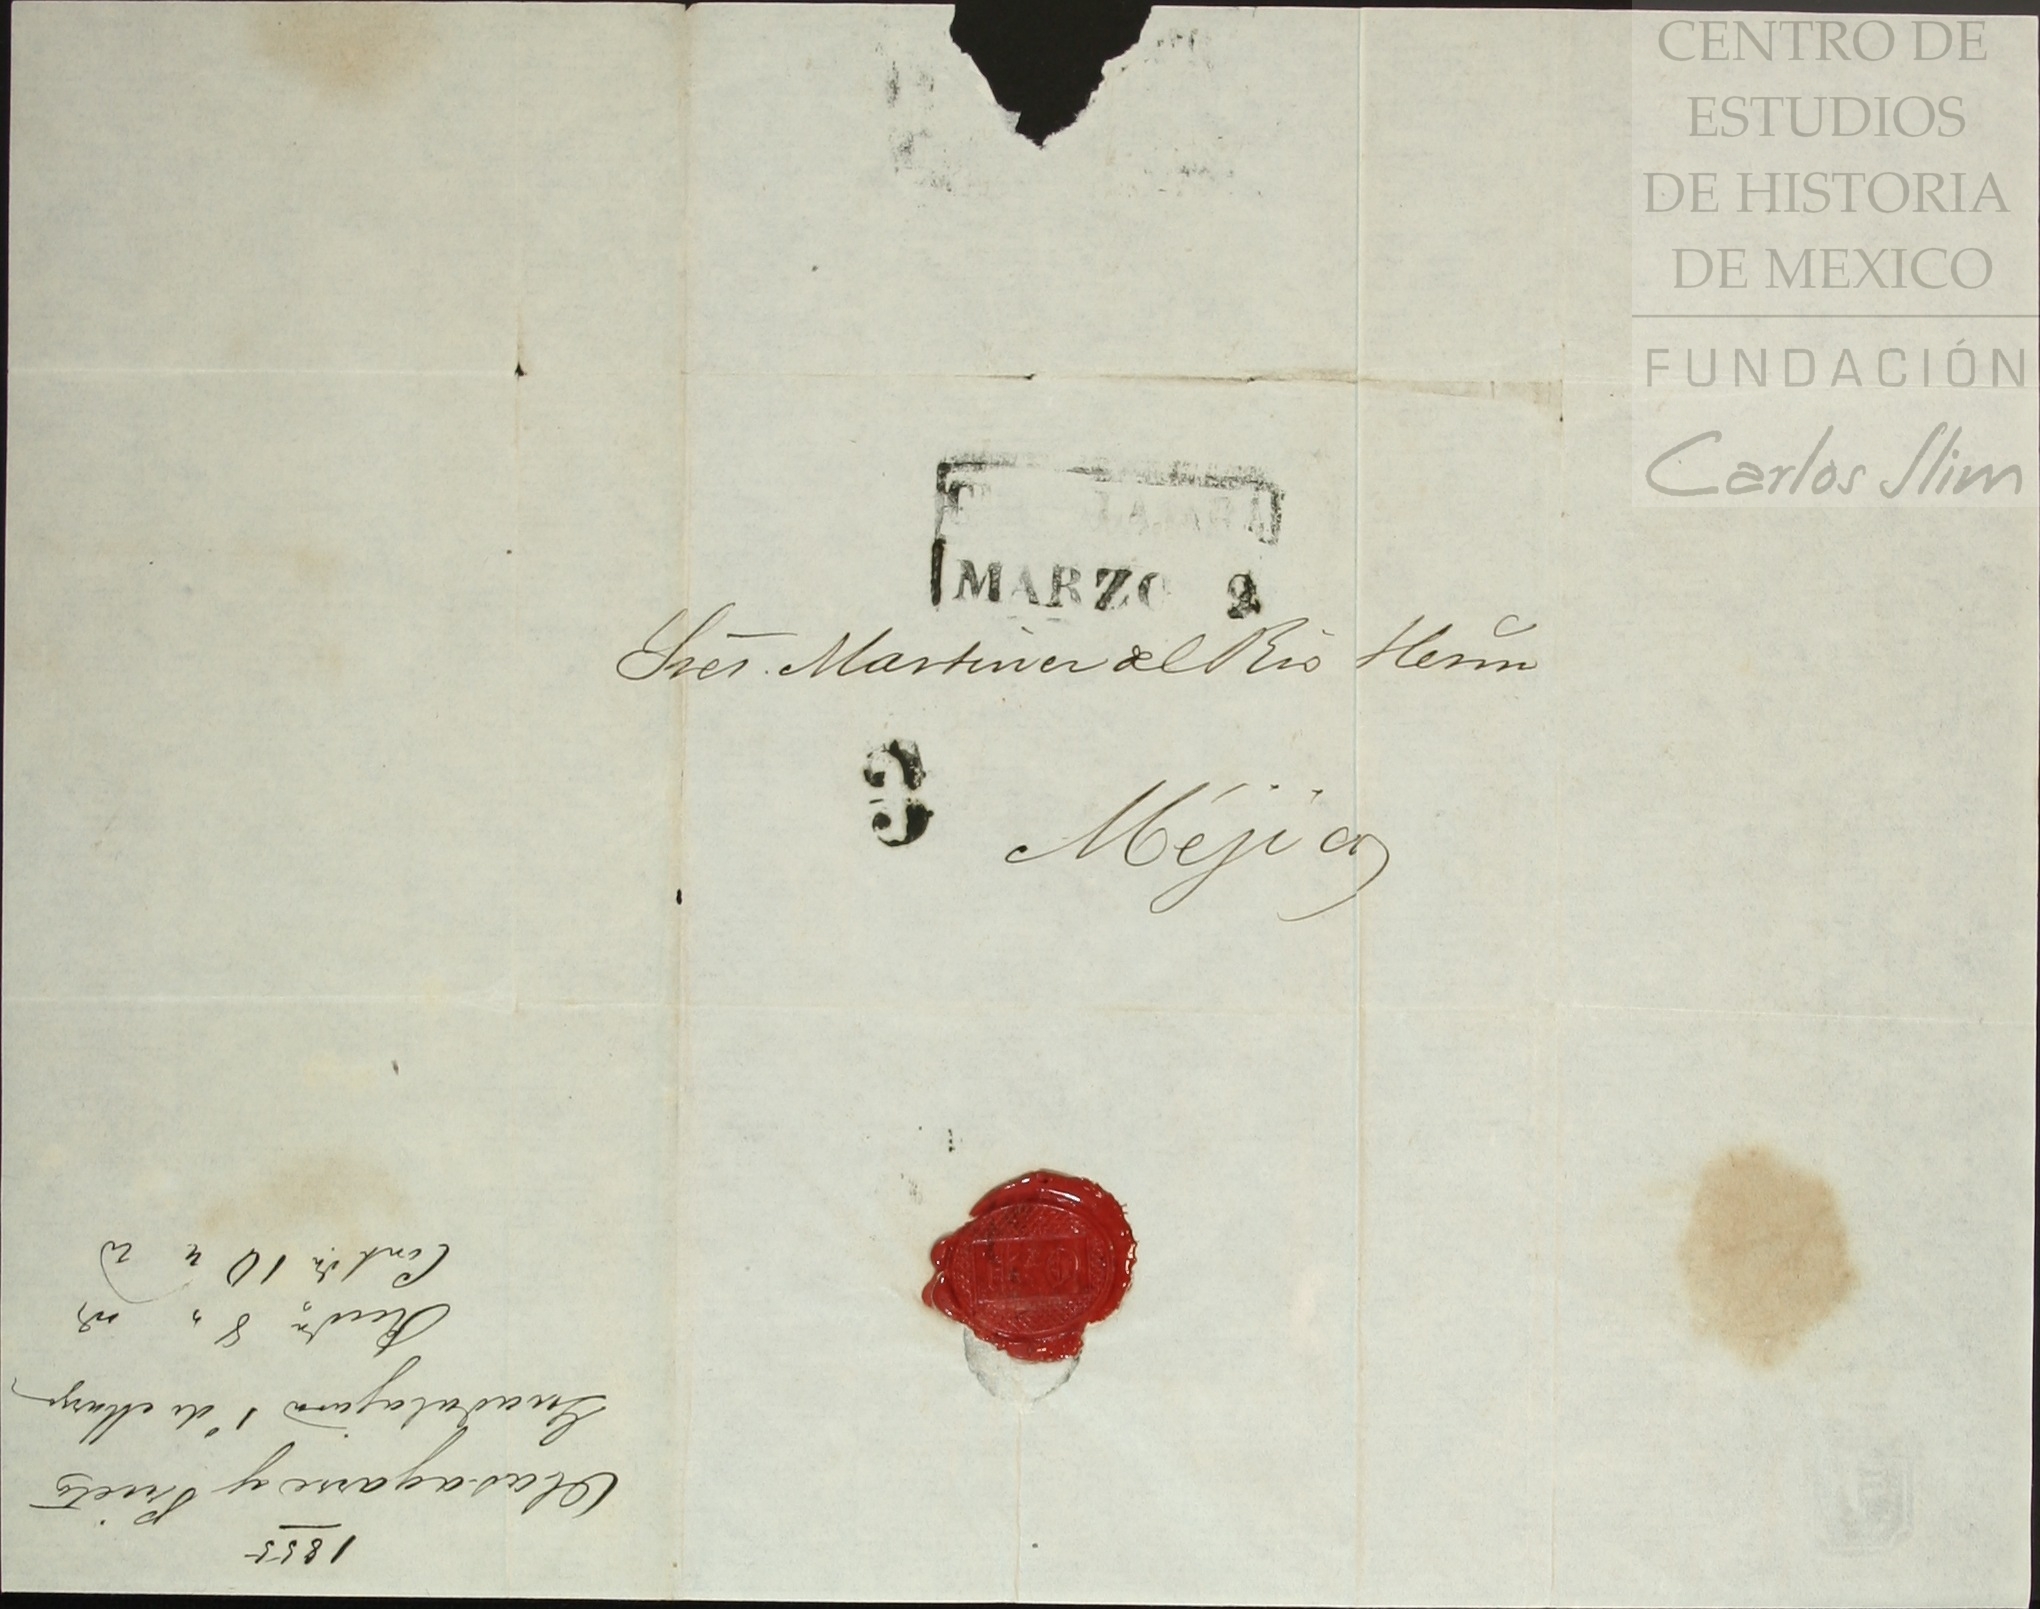 CENTRO DE
ESTUDIOS
DE HISTORIA
DE MEXICO
FUNDACIÓN
Carlos Slim
MARZO 2
Sres. Martinez del Rio Herm
3
Méjico
1855
Olasagarre y Prieto
Guadalajara 1º de Marzo
Recda 8 " "
Contda 10 " "